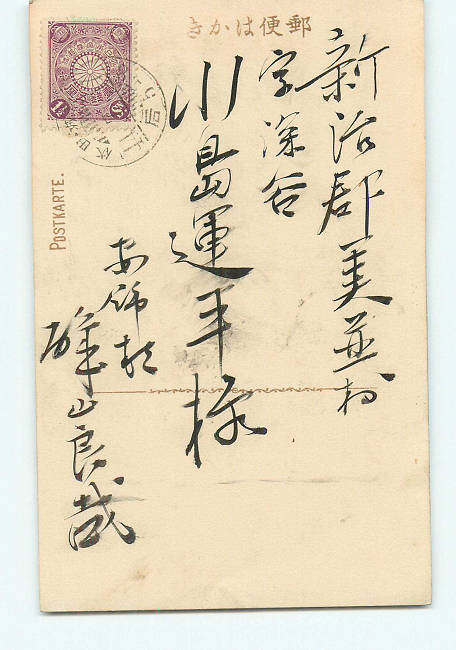 郵便はかき
新治郡美並村
字深谷
川島運平様
安飾村
山良哉
POSTKARTE.
1½ Sn